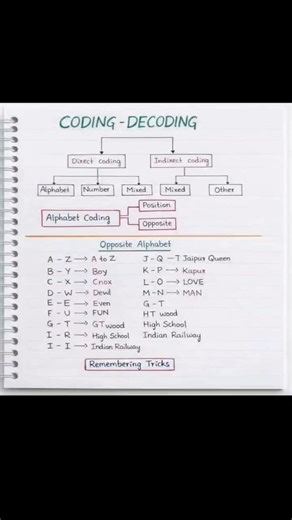 CODING - DECODING
Direct coding Indirect coding
Alphabet Number Mixed Mixed Other
Alphabet Coding Position
Opposite
Opposite Alphabet
A - Z → A to Z J - Q → T Jaipur Queen
B - Y → Boy K - P → Kapur
C - X → Cnox L - O → LOVE
D - W → Devil M - N → MAN
E - E → Even G - T
F - U → FUN HT wood
G - T → GT wood High School
I - R → High School Indian Railway
I - I → Indian Railway
Remembering Tricks